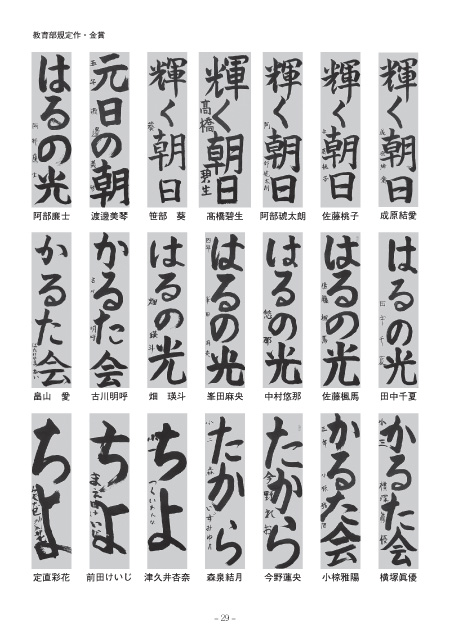 教育部規定作・金賞
はるの光
元日の朝
輝く朝日
輝く朝日
髙橋碧生
輝く朝日
輝く朝日
輝く朝日
阿部廉士 渡邊美琴 笹部 葵 髙橋碧生 阿部琥太朗 佐藤桃子 成原結愛
かるた会
かるた会
はるの光
はるの光
はるの光
はるの光
はるの光
畠山 愛 古川明呼 畑 瑛斗 峯田麻央 中村悠那 佐藤楓馬 田中千夏
ちよ
ちよ
まえだけいじ
ちよ
たから
たから
かるた会
かるた会
定直彩花 前田けいじ 津久井杏奈 森泉結月 今野蓮央 小椋雅陽 横塚眞優
– 29 –